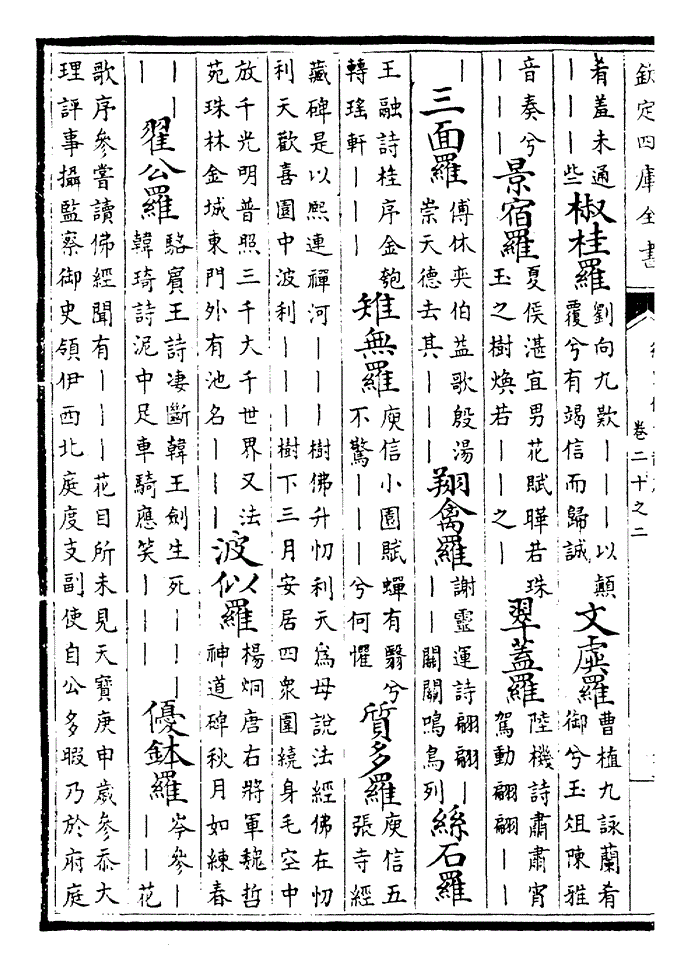 欽定四庫全書
卷二十之二
肴羞未通｜｜｜些 椒桂羅 劉向九歎｜｜｜以顛覆兮有竭信而歸誠 文虞羅 曹植九詠蘭肴御兮玉俎陳雅
音奏兮｜｜｜ 景宿羅 夏侯湛宜男花賦曄若珠玉之樹煥若｜｜之｜ 翠蓋羅 陸機詩肅肅宵駕動翩翩｜｜
｜ 三面羅 傅休奕伯益歌殷湯崇天德去其｜｜｜ 翔禽羅 謝靈運詩翩翩｜｜｜關關鳴鳥列 絲石羅
王融詩桂序金匏轉瑤軒｜｜｜ 雉無羅 庾信小園賦蟬有翳兮不驚｜｜｜兮何懼 質多羅 庾信五張寺經
藏碑是以熙連禪河｜｜｜樹佛升忉利天為母說法經佛在忉利天歡喜園中波利｜｜｜｜樹下三月安居四衆圍繞身毛空中
放千光明普照三千大千世界又法苑珠林金城東門外有池名｜｜｜ 波似羅 楊炯唐右將軍魏哲神道碑秋月如練春
｜｜｜｜ 翟公羅 駱賓王詩凄斷韓王劍生死｜｜｜韓琦詩泥中足車騎應笑｜｜｜ 優鉢羅 岑參｜｜｜花
歌序參嘗讀佛經聞有｜｜｜花目所未見天寶庚申歲參忝大理評事攝監察御史領伊西北庭度支副使自公多暇乃於府庭